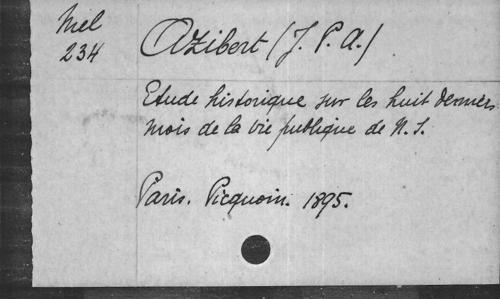 Mel
234
Azibert (J. P. A.)
Etude historique sur les huit derniers
mois de la vie publique de N. S.
Paris. Picquoin. 1895.